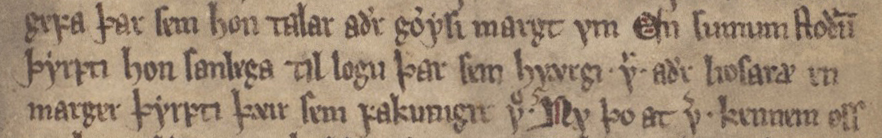 gera þar sem hon talar aðr gøysi margt vm En sumum stoðū
þyrfti hon sanlega til logu þar sem hværgi · ẏ̇ · aðr liosaræ en
marger þyrfti þæir sem fakunnigir · Nv þo at v̇ · kennem oss